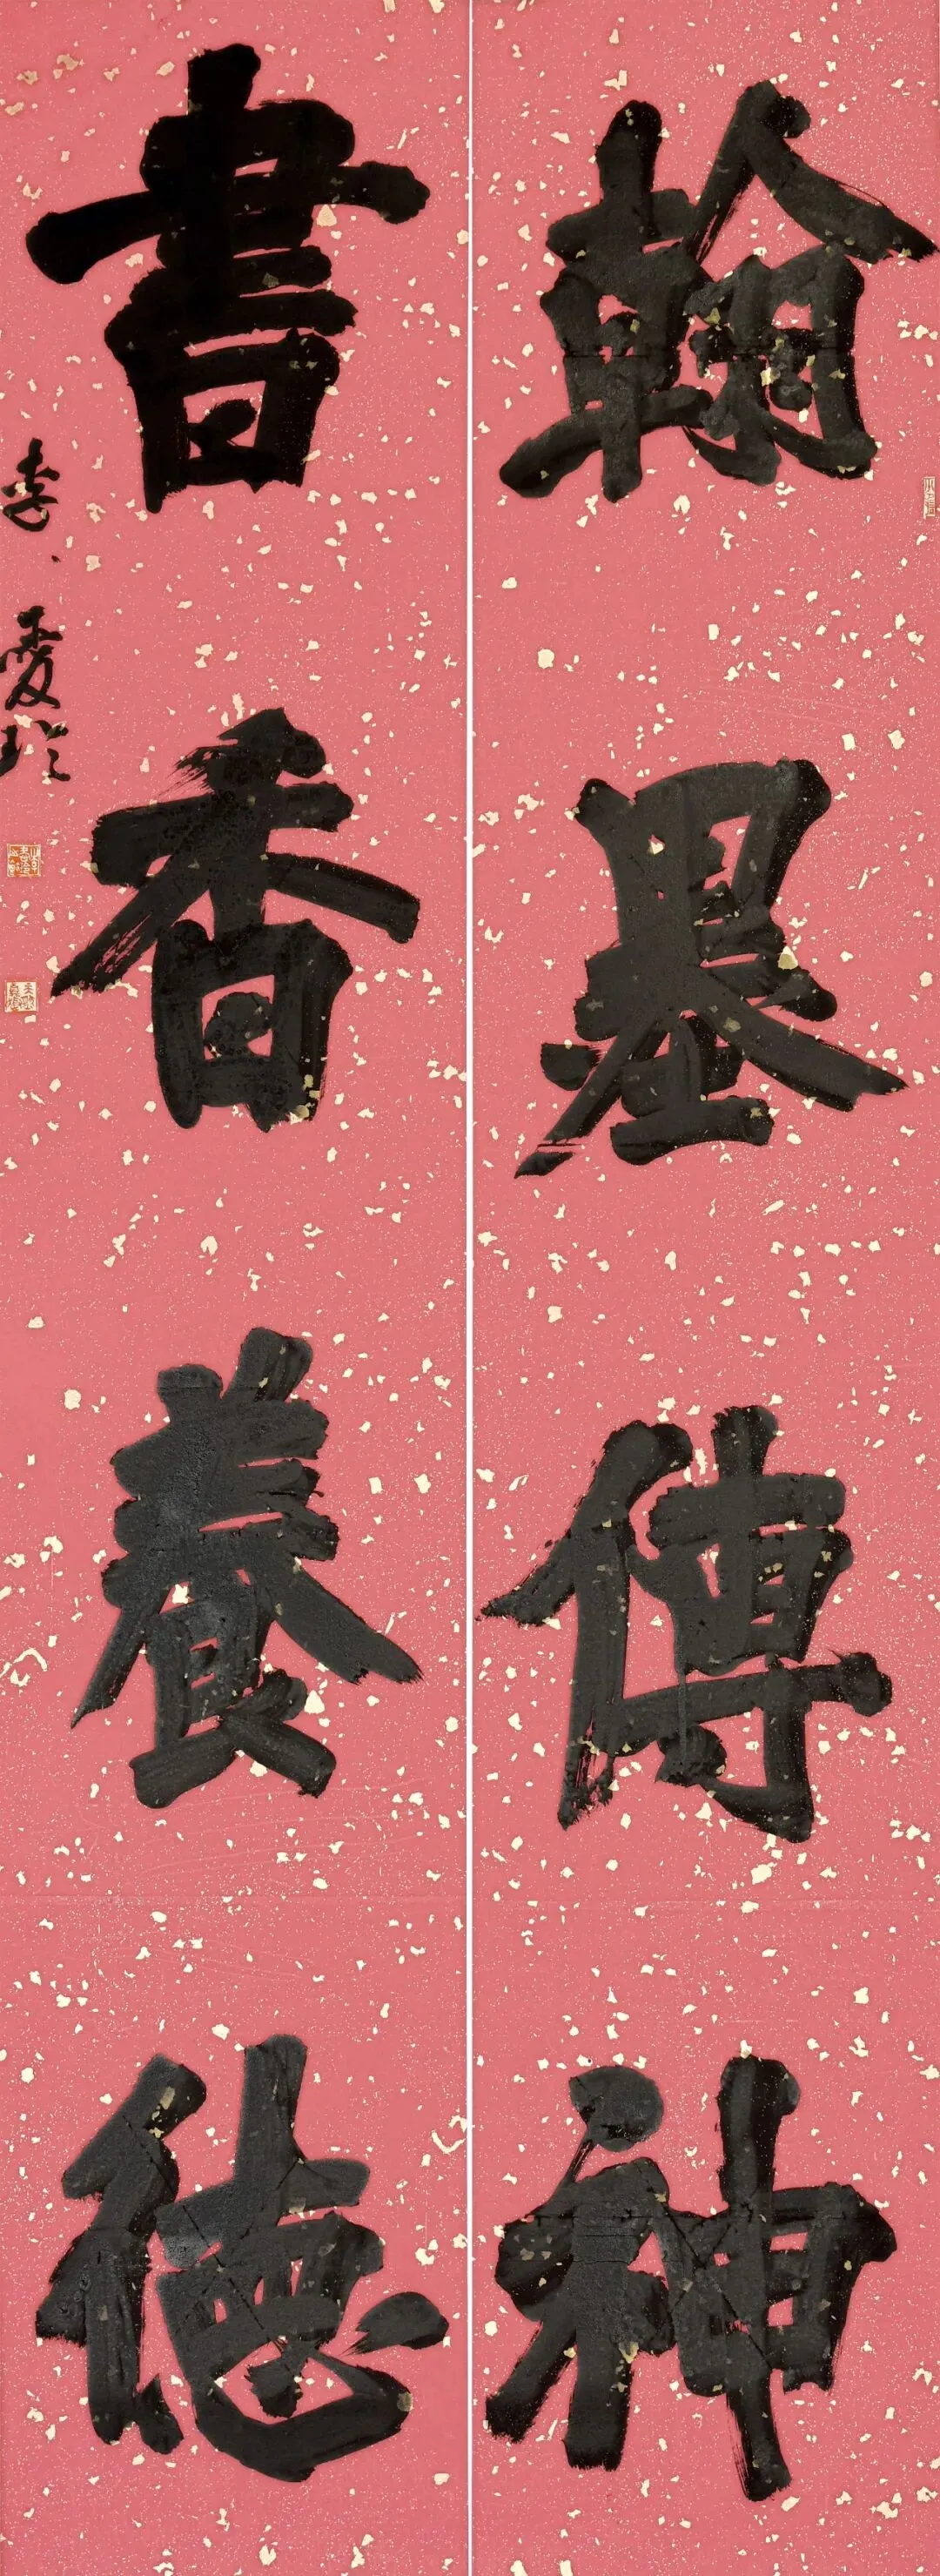 翰墨傳神
書香養德